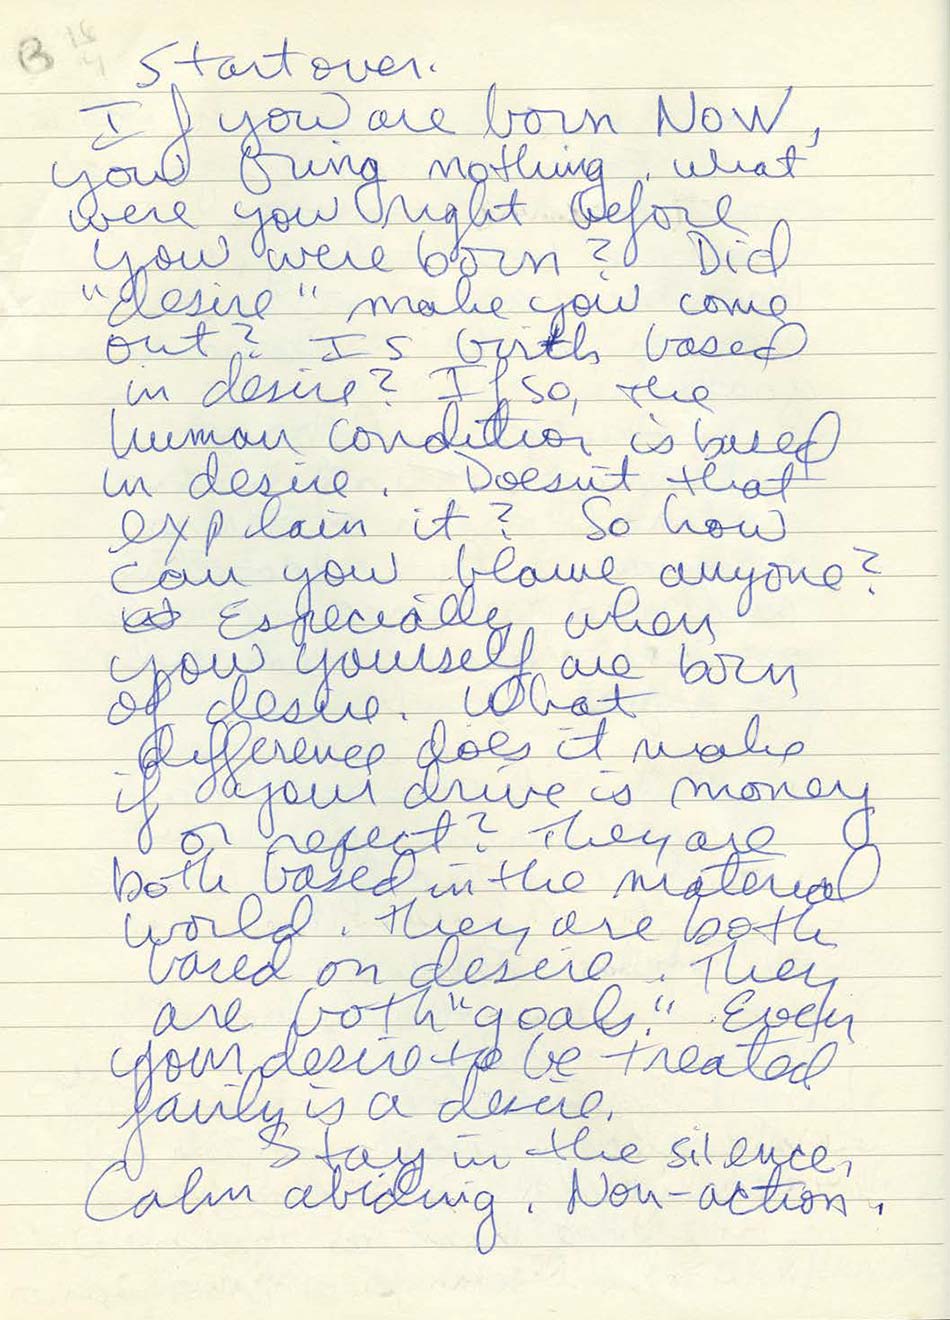 B 16
4
Start over.
If you are born NOW,
you bring nothing. what
were you right before
you were born? Did
"desire" make you come
out? Is birth based
in desire? If so, the
human condition is based
in desire. Doesn't that
explain it? So how
can you blame anyone?
Especially when
you yourself are born
of desire. What
difference does it make
if your drive is money
or repect? They are
both based in the material
world. They are both
based on desire. They
are both "goals." Even
your desire to be treated
fairly is a desire.
Stay in the silence,
Calm abiding. Non-action.